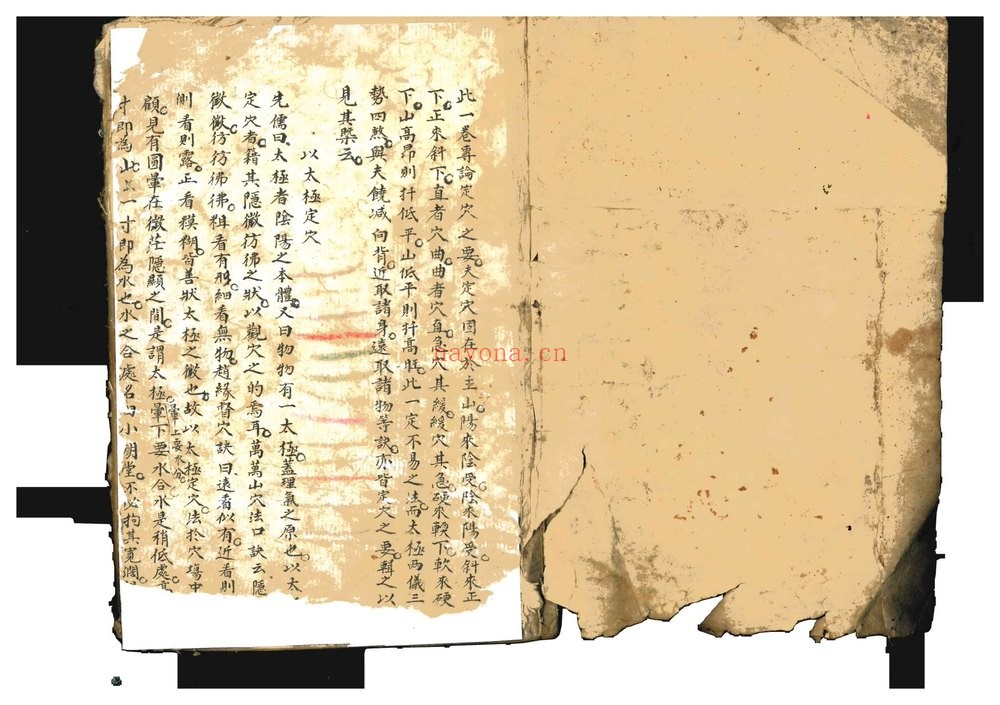 此一卷專論定穴之要夫定穴固在於主山陽來陰受陰來陽受斜來正
下正來斜下直者穴曲曲者穴直急穴其緩緩穴其急硬來軟下軟來硬
下山高昂則扦低平山低平則扦高旺此一定不易之法而太極兩儀三
勢四煞與夫饒减向背近取諸身遠取諸物等訣亦皆定穴之要輯之以
見其槩云
以太極定穴
先儒曰太極者陰陽之本體又曰物物有一太極蓋理氣之原也以太
定穴者藉其隱微彷彿之狀以觀穴之的焉耳萬萬山穴法口訣云隱
微微彷彷彿彿粗看有形細看無物趙緣督穴訣曰遠看似有近看則
側看則露正看模糊皆善狀太極之微也故以太極定穴法於穴塲中
暈上要水分
顧見有圓暈在微茫隱顯之間是謂太極暈下要水合水是稍低處高
寸即為山上一寸即為水也水之合處名曰小明堂不必拘其寬濶
nayona.cn